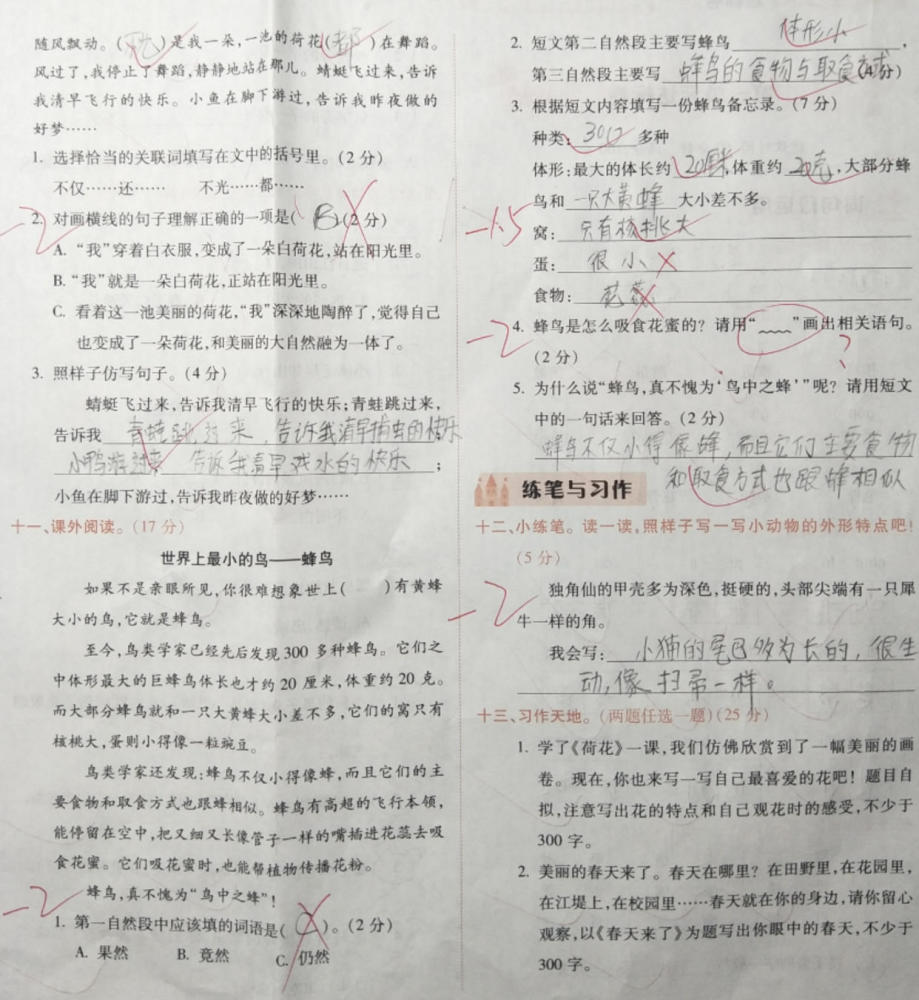 随风飘动。()是我一朵,一池的荷花(都)在舞蹈。
风过了,我停止了舞蹈,静静地站在那儿。蜻蜓飞过来,告诉
我清早飞行的快乐。小鱼在脚下游过,告诉我昨夜做的
好梦……
1. 选择恰当的关联词填写在文中的括号里。(2分)
不仅……还…… 不光……都……
-2
2. 对画横线的句子理解正确的一项是( B )(2分)
A. “我”穿着白衣服,变成了一朵白荷花,站在阳光里。
B. “我”就是一朵白荷花,正站在阳光里。
C. 看着这一池美丽的荷花,“我”深深地陶醉了,觉得自己
也变成了一朵荷花,和美丽的大自然融为一体了。
3. 照样子仿写句子。(4分)
蜻蜓飞过来,告诉我清早飞行的快乐;青蛙跳过来,
告诉我 青蛙跳过来,告诉我清早捕虫的快乐
小鸭游过来 告诉我清早戏水的快乐 ;
小鱼在脚下游过,告诉我昨夜做的好梦……
十一、课外阅读。(17分)
世界上最小的鸟——蜂鸟
如果不是亲眼所见,你很难想象世上( )有黄蜂
大小的鸟,它就是蜂鸟。
至今,鸟类学家已经先后发现300多种蜂鸟。它们之
中体形最大的巨蜂鸟体长也才约20厘米,体重约20克。
而大部分蜂鸟就和一只大黄蜂大小差不多,它们的窝只有
核桃大,蛋则小得像一粒豌豆。
鸟类学家还发现:蜂鸟不仅小得像蜂,而且它们的主
要食物和取食方式也跟蜂相似。蜂鸟有高超的飞行本领,
能停留在空中,把又细又长像管子一样的嘴插进花蕊去吸
食花蜜。它们吸花蜜时,也能帮植物传播花粉。
蜂鸟,真不愧为“鸟中之蜂”!
-2
1. 第一自然段中应该填的词语是( C )。(2分)
A. 果然 B. 竟然 C. 仍然
2. 短文第二自然段主要写蜂鸟 体形小 ,
第三自然段主要写 蜂鸟的食物与取食方式 (4分)
3. 根据短文内容填写一份蜂鸟备忘录。(7分)
种类: 300 多种
体形:最大的体长约 20厘米,体重约 20克,大部分蜂
鸟和 一只大黄蜂 大小差不多。
-1.5
窝: 只有核桃大
蛋: 很小
食物: 花蕊
-2
4. 蜂鸟是怎么吸食花蜜的?请用“﹏﹏”画出相关语句。
(2分)
?
5. 为什么说“蜂鸟,真不愧为‘鸟中之蜂’”呢?请用短文
中的一句话来回答。(2分)
蜂鸟不仅小得像蜂,而且它们主要食物
和取食方式也跟蜂相似
练笔与习作
十二、小练笔。读一读,照样子写一写小动物的外形特点吧!
(5分)
-2
独角仙的甲壳多为深色,挺硬的,头部尖端有一只犀
牛一样的角。
我会写: 小猫的尾巴多为长的,很生
动,像扫帚一样。
十三、习作天地。(两题任选一题)(25分)
1. 学了《荷花》一课,我们仿佛欣赏到了一幅美丽的画
卷。现在,你也来写一写自己最喜爱的花吧!题目自
拟,注意写出花的特点和自己观花时的感受,不少于
300字。
2. 美丽的春天来了。春天在哪里?在田野里,在花园里,
在江堤上,在校园里……春天就在你的身边,请你留心
观察,以《春天来了》为题写出你眼中的春天,不少于
300字。